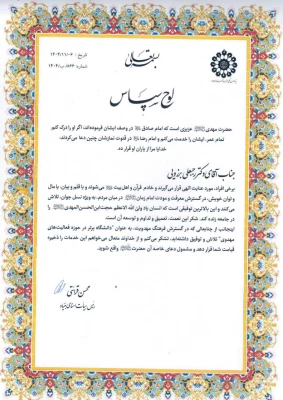 بسمه تعالی
تاریخ:
شماره:
لوح سپاس
حضرت مهدی عزیزی است که امام صادق در وصف ایشان فرموده‌اند: اگر او را درک کنم
تمام عمر، ایشان را خدمت می‌کنم و امام رضا در قنوت نمازشان چنین دعا می‌کردند.
خدایا مرا از یاران او قرار ده.
جناب آقای دکتر
برخی افراد، مورد عنایت الهی قرار می‌گیرند و خادم قرآن و اهل بیت می‌شوند و با قلم و بیان، با مال
و توان خویش، در گسترش معرفت و مودت امام زمان در میان مردم، به ویژه نسل جوان، تلاش
می‌کنند و این بالاترین توفیقی است که انسان یاد ولی الله الاعظم حجت‌ابن‌الحسن‌المهدی
در جامعه زنده کند. شکر این نعمت، تعمیق و تداوم و توسعه آن است.
اینجانب از جنابعالی که در گسترش فرهنگ مهدویت، به عنوان "دانشگاه برتر در حوزه فعالیت‌های
مهدوی" تلاش و توفیق داشته‌اید، تشکر می‌کنم و از خداوند متعال می‌خواهم این خدمات را ذخیره
قیامت شما قرار دهد و مشمول دعای خاصه آن حضرت واقع شوید.
محسن قرائتی
رئیس هیأت امنای بنیاد